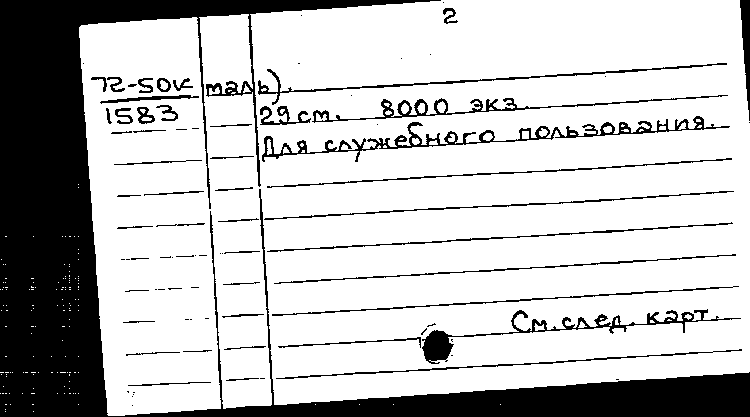 2
72-50к таль).
1583 29 см. 8000 экз.
Для служебного пользования.
См. след. карт.